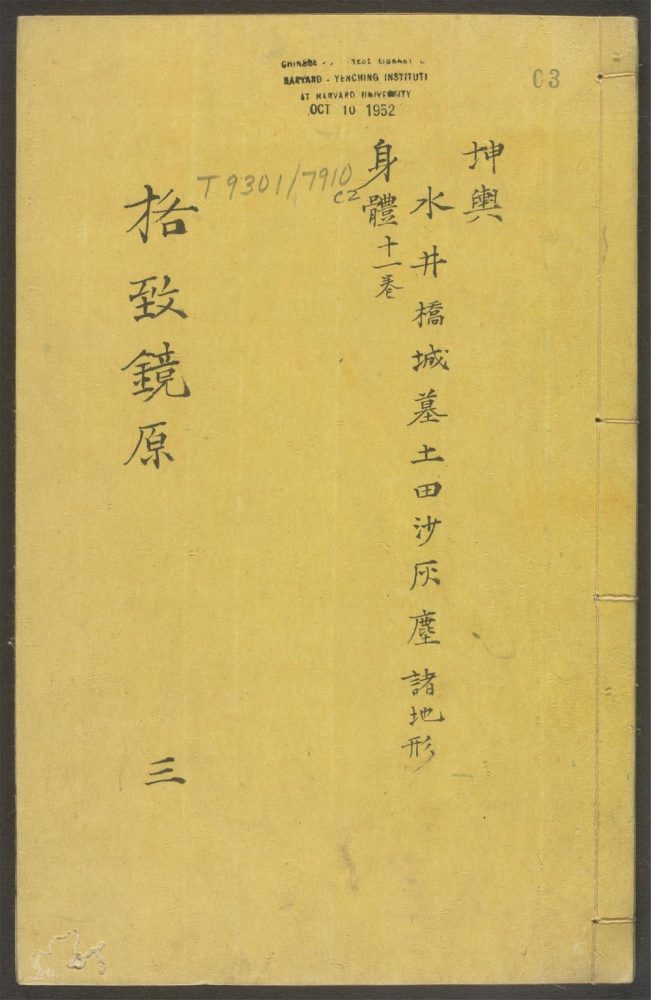 HARVARD - YENCHING INSTITUTE
AT HARVARD UNIVERSITY
OCT 10 1952
03
坤輿
水井橋城墓土田沙灰塵諸地形
身體十一卷
T 9301/7910
C2
格致鏡原
三